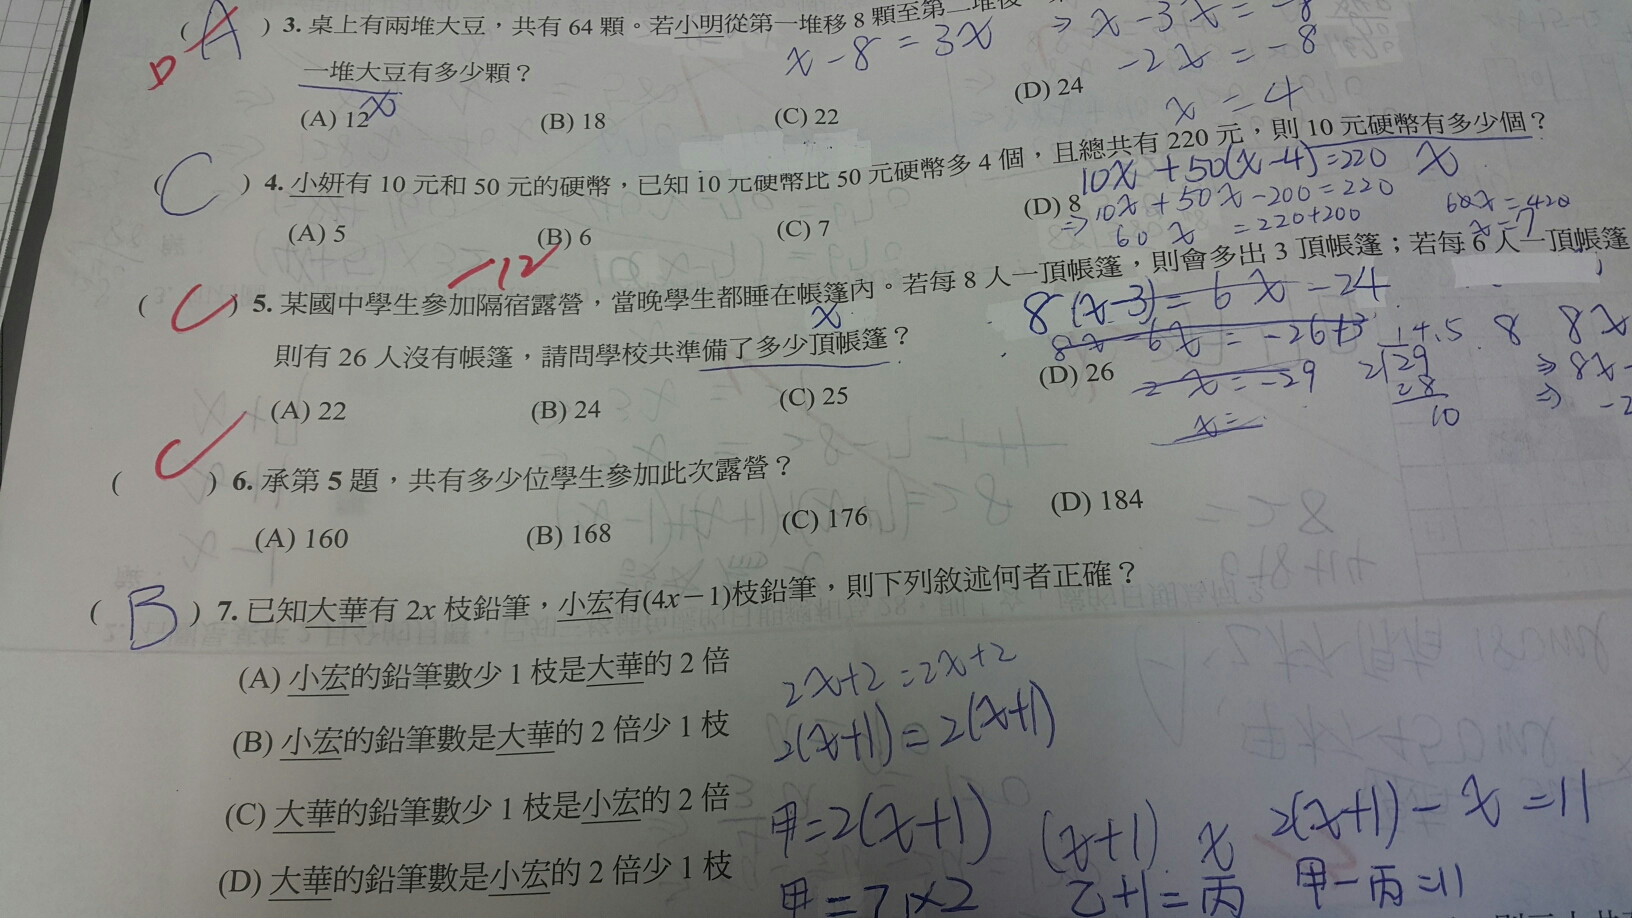 (A) 3. 桌上有兩堆大豆，共有 64 顆。若小明從第一堆移 8 顆至第二堆後
D
x-8=3x ⇒ x-3x=-8
一堆大豆有多少顆？
-2x=-8
x
x=4
(A) 12 (B) 18 (C) 22 (D) 24
(C) 4. 小妍有 10 元和 50 元的硬幣，已知 10 元硬幣比 50 元硬幣多 4 個，且總共有 220 元，則 10 元硬幣有多少個？
10x+50(x-4)=220 x
⇒10x+50x-200=220
60x=220+200
60x=420
x=7
(A) 5 (B) 6 (C) 7 (D) 8
-12
( ) 5. 某國中學生參加隔宿露營，當晚學生都睡在帳篷內。若每 8 人一頂帳篷，則會多出 3 頂帳篷；若每 6 人一頂帳篷
x
8(x-3)=6x-24
則有 26 人沒有帳篷，請問學校共準備了多少頂帳篷？
14.5 8 8x
2 29
28
10
x=-29
x=
⇒ 8x-
⇒ -2
(A) 22 (B) 24 (C) 25 (D) 26
( ) 6. 承第 5 題，共有多少位學生參加此次露營？
(A) 160 (B) 168 (C) 176 (D) 184
(B) 7. 已知大華有 2x 枝鉛筆，小宏有(4x－1)枝鉛筆，則下列敘述何者正確？
(A) 小宏的鉛筆數少 1 枝是大華的 2 倍
2x+2=2x+2
(B) 小宏的鉛筆數是大華的 2 倍少 1 枝
2(x+1)=2(x+1)
(C) 大華的鉛筆數少 1 枝是小宏的 2 倍
甲=2(x+1) (x+1) x 2(x+1)-x=11
(D) 大華的鉛筆數是小宏的 2 倍少 1 枝
乙+1=丙 甲-丙=11